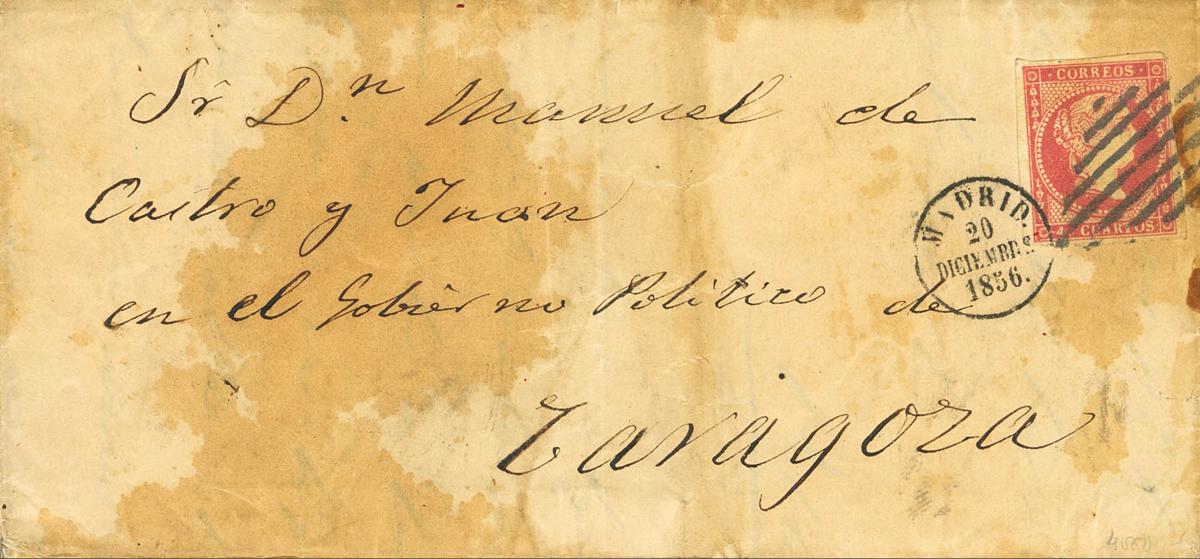 CORREOS
Sr D.n Manuel de
Castro y Juan
4 CUARTOS
MADRID.
20
DICIEMBRE
1856.
en el Gobierno Politico de
Zaragoza